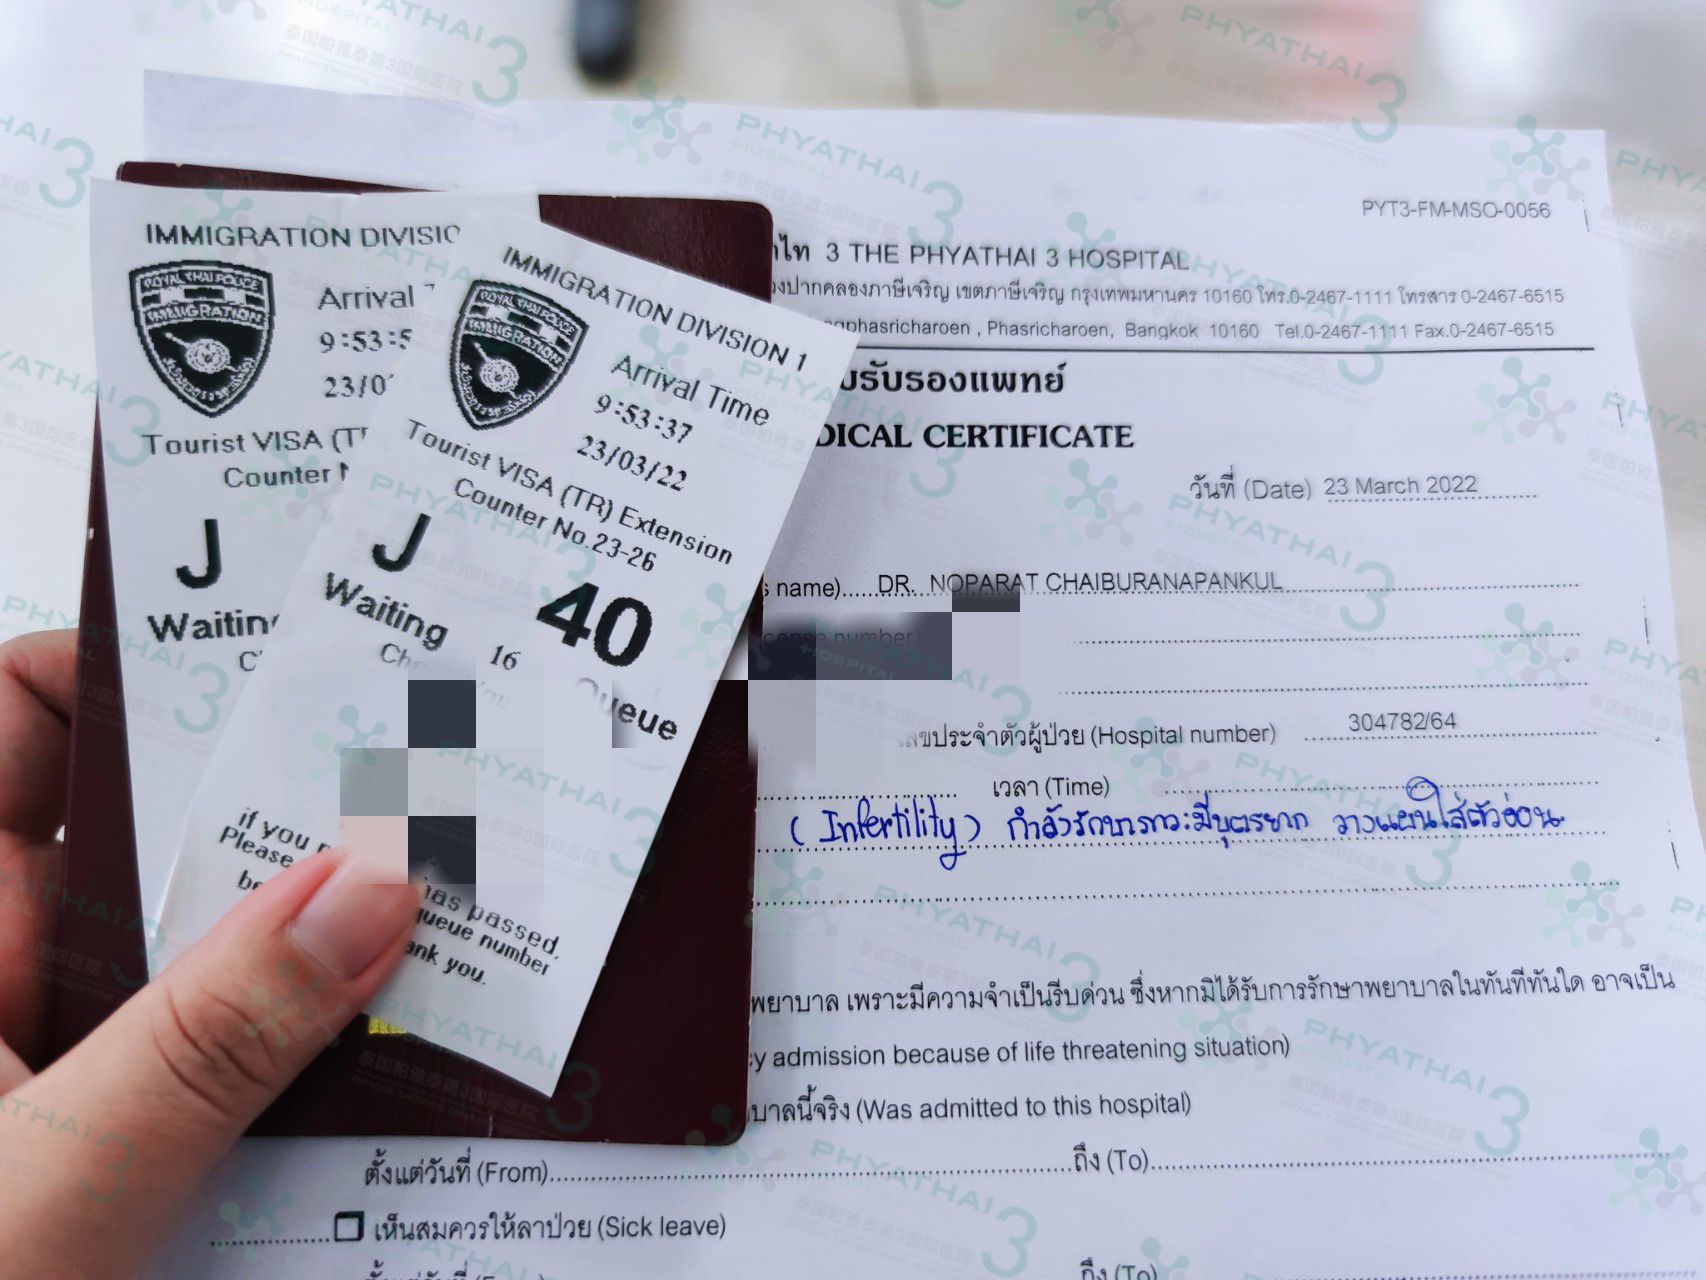 IMMIGRATION DIVISIO
ROYAL THAI POLICE
IMMIGRATION
Arrival
9:53:5
23/0
Tourist VISA (T
Counter N
J
Waitin
IMMIGRATION DIVISION 1
ROYAL THAI POLICE
IMMIGRATION
Arrival Time
9:53:37
23/03/22
Tourist VISA (TR) Extension
Counter No.23-26
J 40
Waiting 16 Queue
if you
Please has passed.
queue number
ank you.
PYT3-FM-MSO-0056
3 THE PHYATHAI 3 HOSPITAL
ปากคลองภาษีเจริญ เขตภาษีเจริญ กรุงเทพมหานคร 10160 โทร.0-2467-1111 โทรสาร 0-2467-6515
gphasricharoen , Phasricharoen, Bangkok 10160 Tel.0-2467-1111 Fax.0-2467-6515
บรับรองแพทย์
DICAL CERTIFICATE
วันที่ (Date) 23 March 2022
s name) DR. NOPARAT CHAIBURANAPANKUL
cense number)
เลขประจำตัวผู้ป่วย (Hospital number) 304782/64
เวลา (Time)
(Infertility) กำลังรักษาภาวะมีบุตรยาก วางแผนใส่ตัวอ่อน
พยาบาล เพราะมีความจำเป็นรีบด่วน ซึ่งหากมิได้รับการรักษาพยาบาลในทันทีทันใด อาจเป็น
cy admission because of life threatening situation)
บาลนี้จริง (Was admitted to this hospital)
ตั้งแต่วันที่ (From) ถึง (To)
เห็นสมควรให้ลาป่วย (Sick leave)
ถึง (To)
PHYATHAI 3
HOSPITAL
泰国帕雅泰第3国际医院